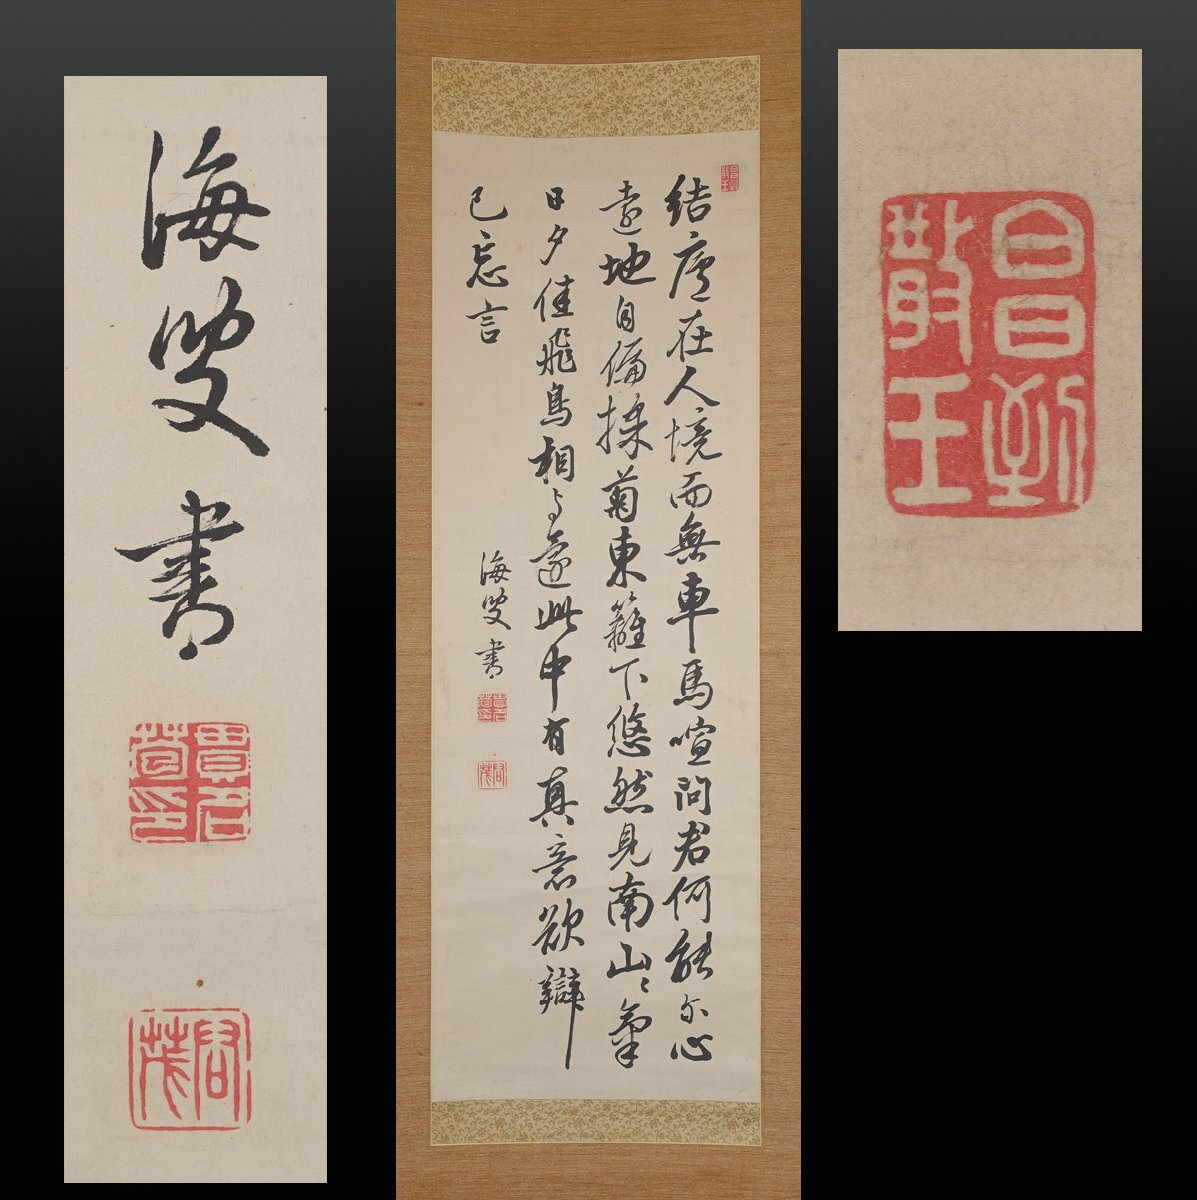 結廬在人境而無車馬喧問君何能尓心
遠地自偏採菊東籬下悠然見南山々氣
日夕佳飛鳥相与還此中有真意欲辯
已忘言
海叟書
貫名苞印
君茂
海叟書
貫名苞印
君茂